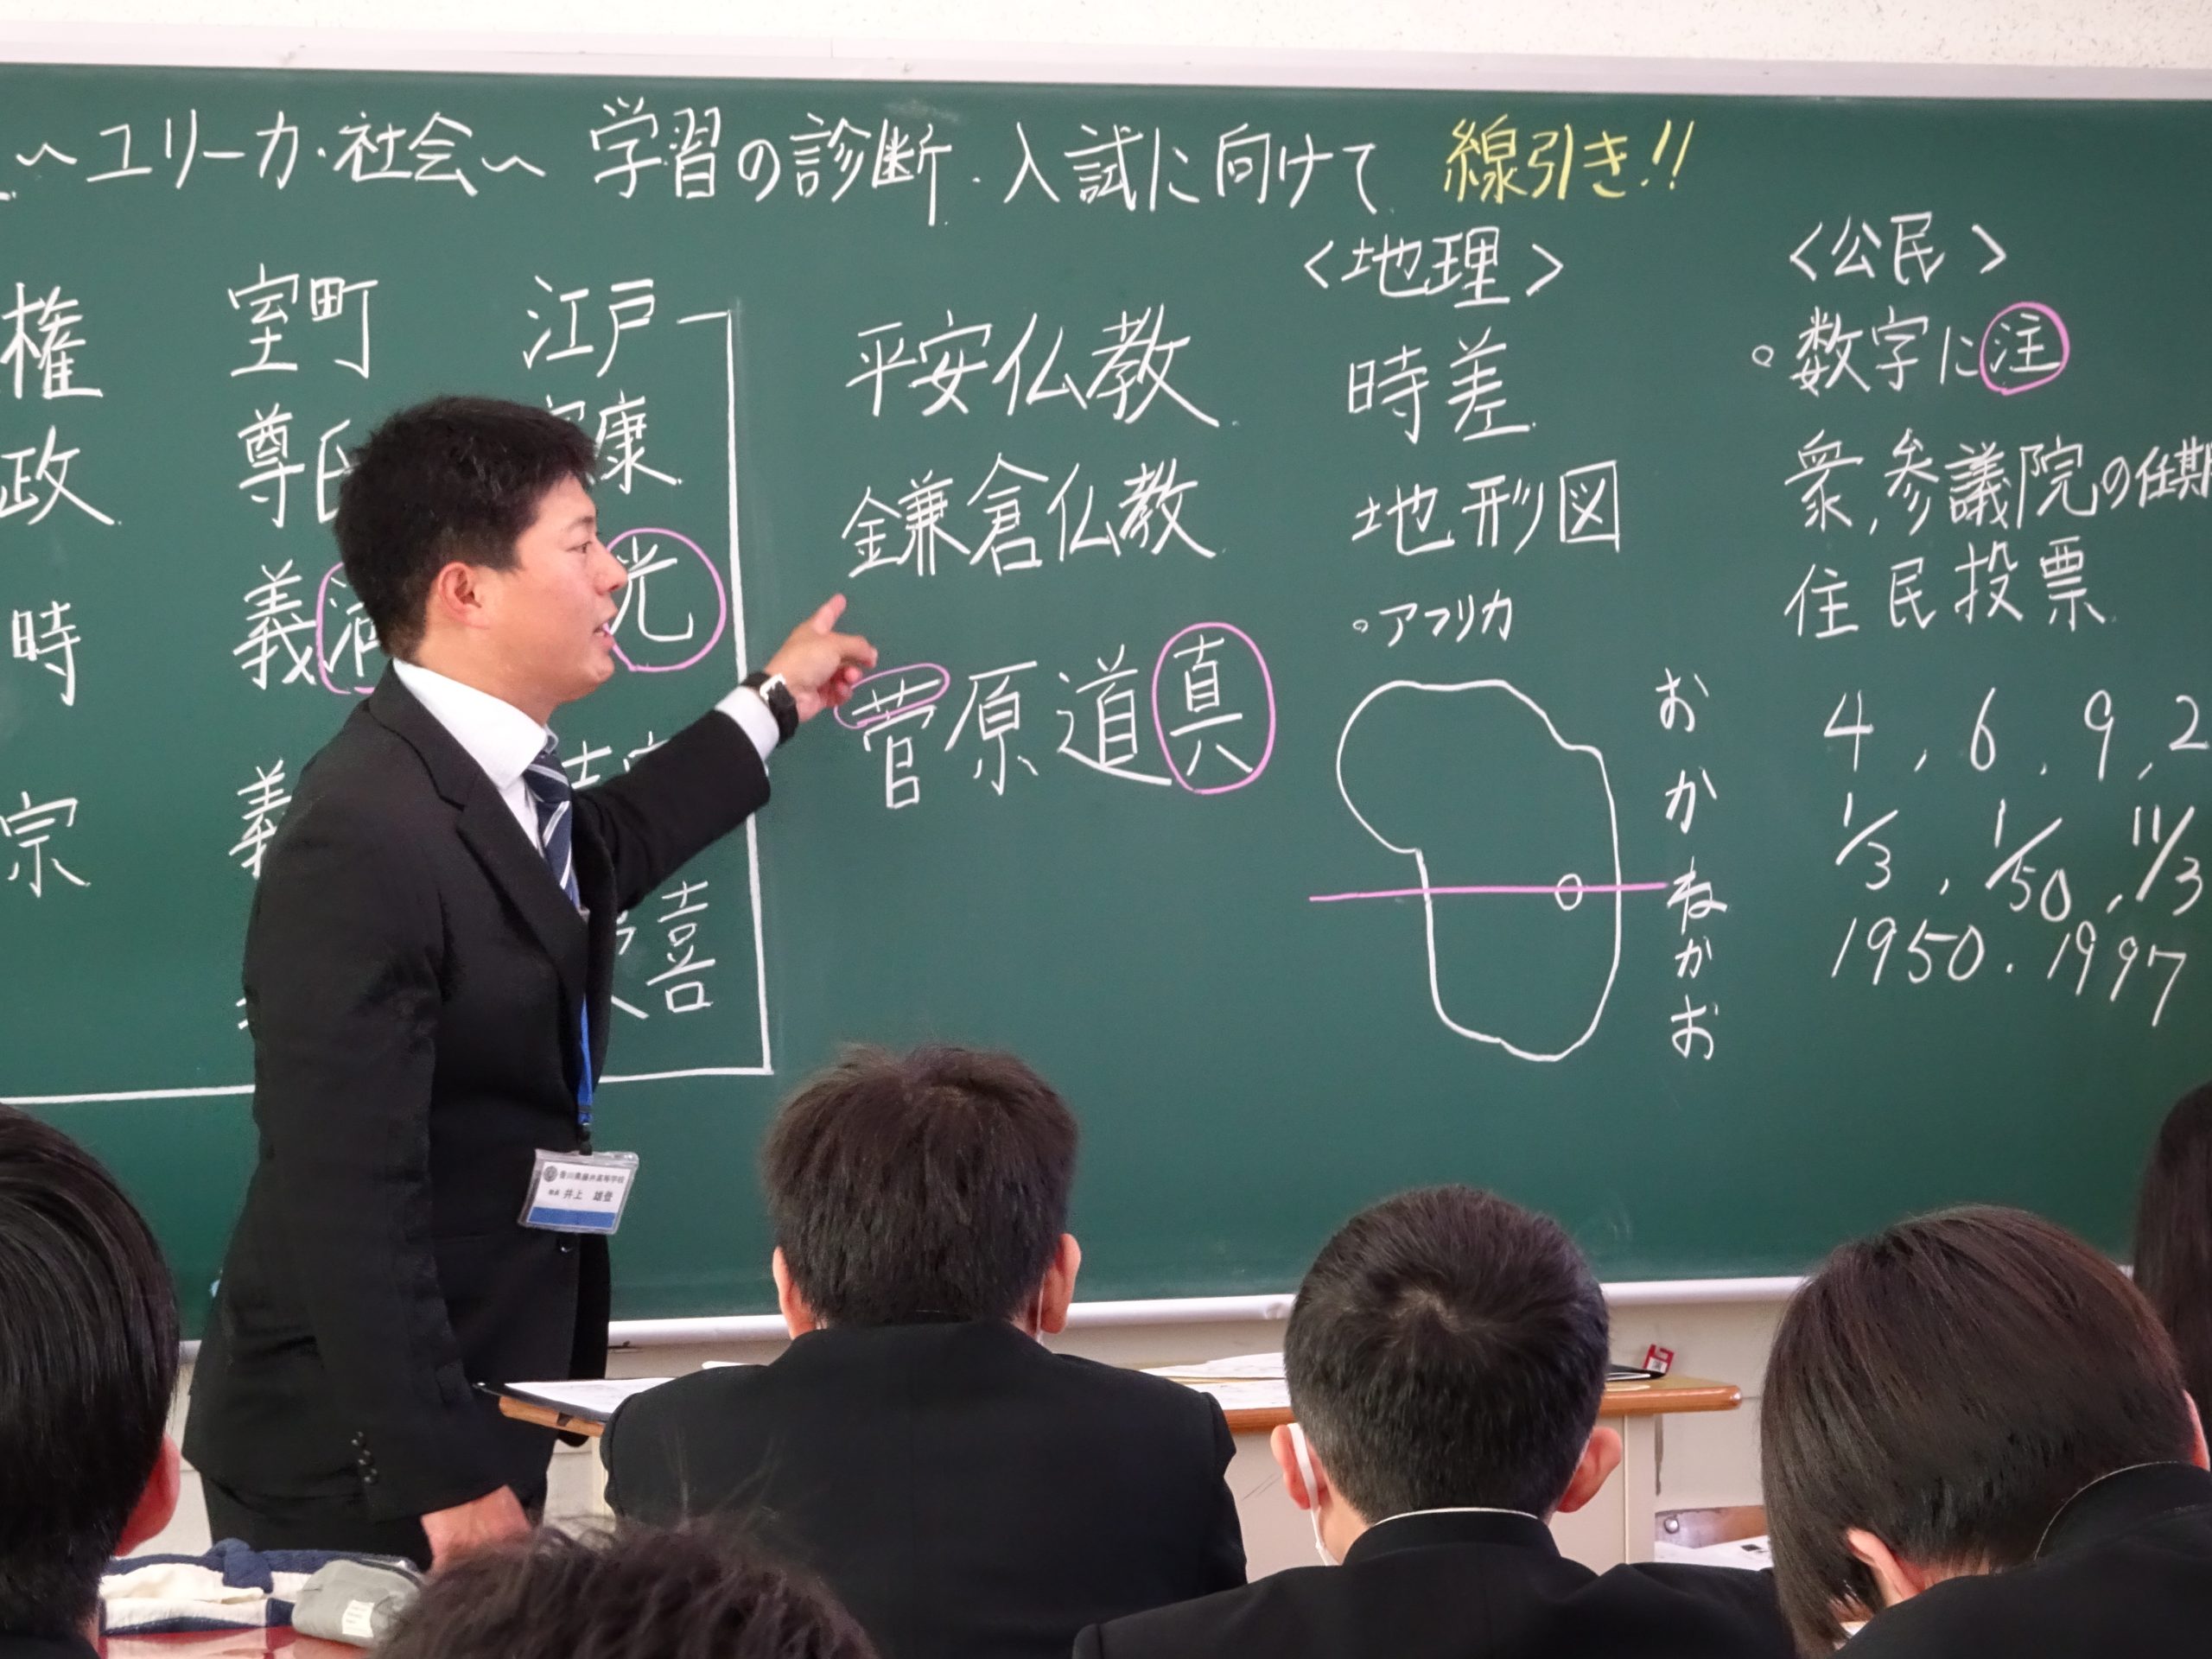 〜ユリーカ・社会〜 学習の診断・入試に向けて 線引き!!
権
政
時
宗
室町
尊氏
義満
義
江戸
康
光
喜
平安仏教
鎌倉仏教
菅原道真
<地理>
時差
地形図
アフリカ
おかねかお
<公民>
数字に注
衆,参議院の任期
住民投票
4, 6, 9, 2
1/3, 1/50, 11/3
1950. 1997
井上 雄登